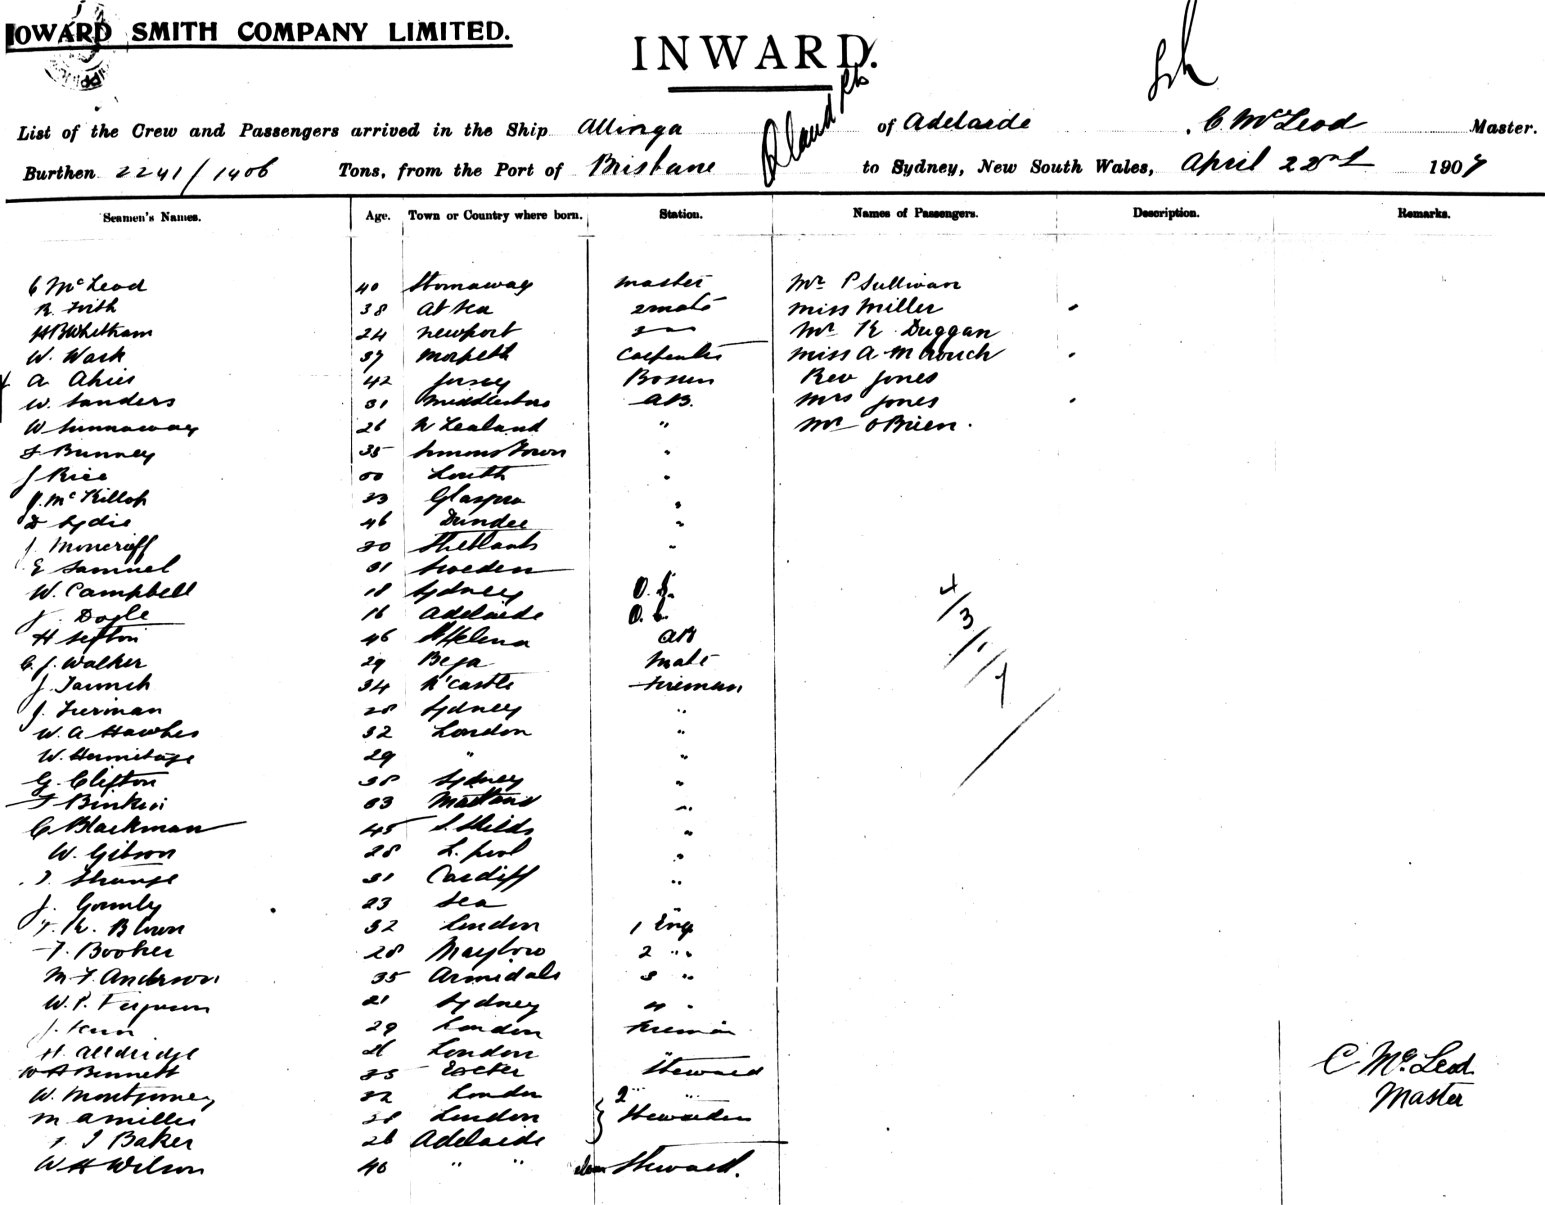 OWARD SMITH COMPANY LIMITED.
INWARD.
List of the Crew and Passengers arrived in the Ship Allinga of Adelaide , C. McLeod Master.
Burthen 2241/1406 Tons, from the Port of Brisbane to Sydney, New South Wales, April 22nd 1907
Seamen's Names. Age. Town or Country where born. Station. Names of Passengers. Description. Remarks.
C McLeod 40 Stornaway master Mr P Sullivan
R Firth 38 at sea 2 mate miss Miller
H B Whetham 24 newport 3 — Mr K Duggan
W. Wark 37 Morpeth Carpenter miss A M Crouch
A Ahier 42 Jersey Bosun Rev Jones
W. Sanders 31 Middlesboro AB. Mrs Jones
W 26 N Zealand " Mr O'Brien.
F Bunney 35 Simons Town "
J Rice 50 Louth "
J. McKillop 23 Glasgow "
D Lydie 46 Dundee "
J. Moncrieff 30 Shetlands "
E Samuel 31 Sweden
W. Campbell 18 Sydney O.S.
J. Doyle 16 Adelaide O.S.
H Sefton 46 St Helena AB
C. J. Walker 29 Bega Mate
J. 34 N'Castle Fireman
J. Tierman 28 Sydney "
W. A Hawkes 32 London "
W. Hermitage 29 " "
G. Clifton 38 Sydney "
33 Maitland "
C Blackman 45 S. Shields "
W. Gibson 28 L. pool "
T. Strange 31 Cardiff "
J. Gormly 23 Sea "
T. K. Blown 32 London 1 Eng
T. Booker 28 Maryboro 2 "
M. F. Anderson 35 Armidale 3 "
W. P. Ferguson 21 Sydney 4 "
J. Kenn 29 London Fireman
H. Alldridge 26 London
W A Bennett 35 Exeter Steward
W. Montgomery 22 London 2 "
M A Miller 28 London Stewardess
T J Baker 26 Adelaide
W H Wilson 40 " " Steward.
4/3/1/7
C McLeod
Master